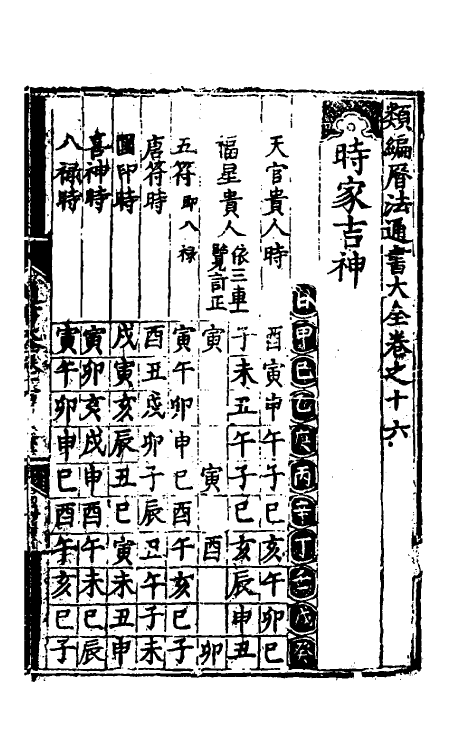 類編曆法通書大全卷之十六
時家吉神
日甲己乙庚丙辛丁壬戊癸
天官貴人時 酉寅申午子巳亥午卯巳
福星貴人 依三車覽訂正 子未丑午子巳亥辰申丑
寅寅酉卯
五符 即八祿 寅午卯申巳酉午亥巳子
唐符時 酉丑戌卯子辰丑午子未
國印時 戌寅亥辰丑巳寅未丑申
喜神時 寅卯亥戌申酉午未巳辰
八祿時 寅午卯申巳酉午亥巳子